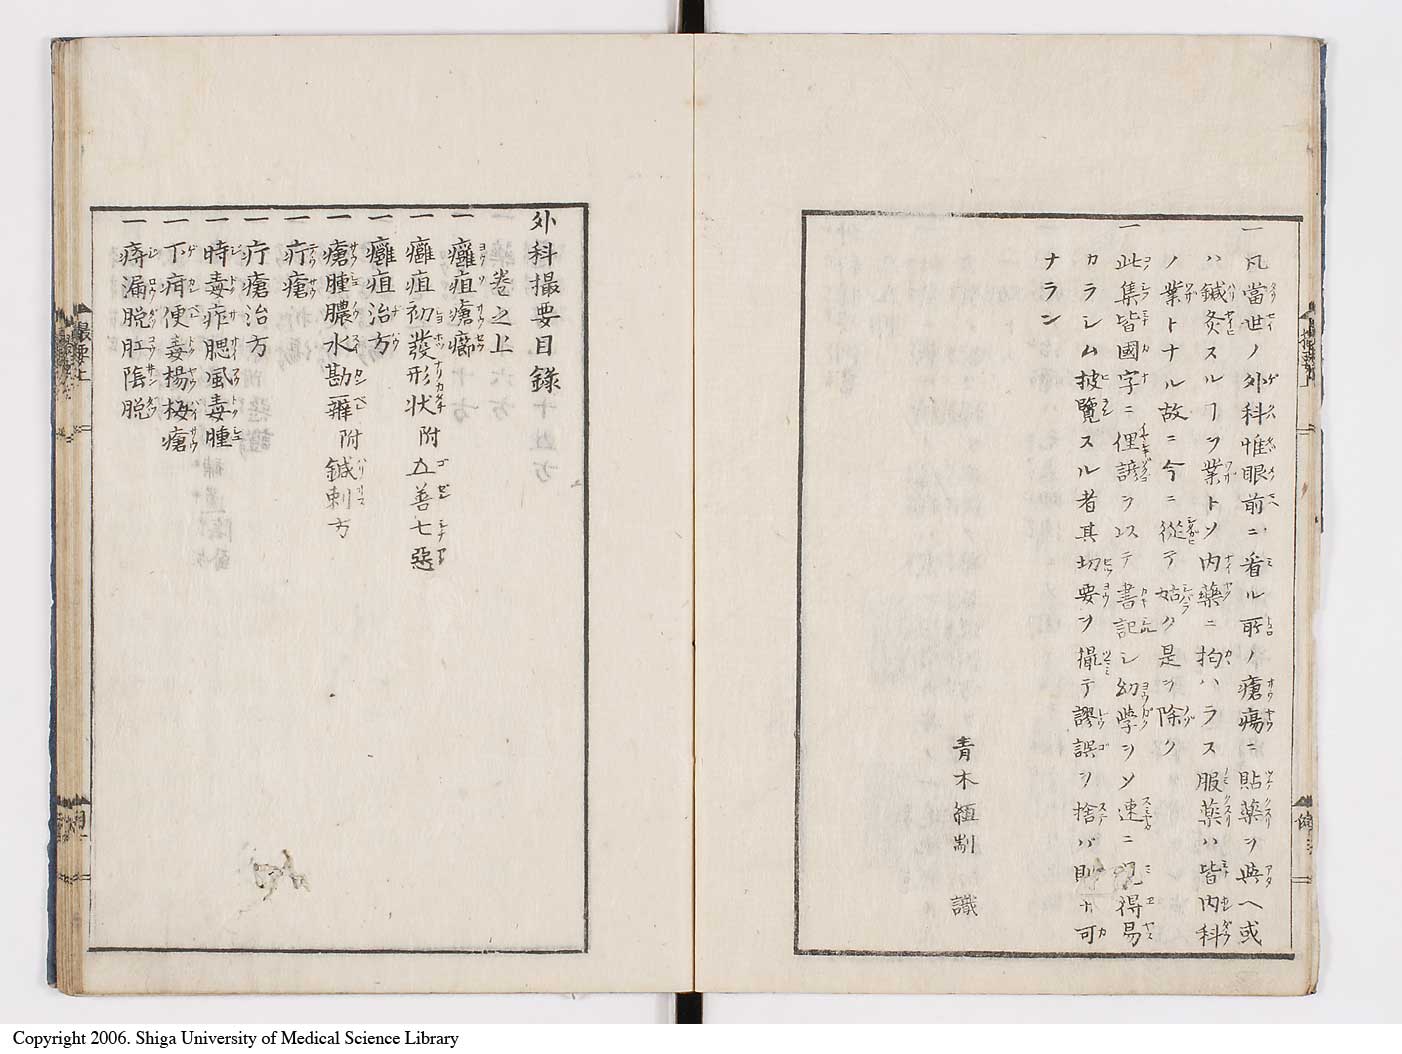 一凡當世ノ外科惟眼前ニ看ル所ノ瘡瘍ニ貼藥ヲ與ヘ或
ハ鍼灸スルヿヲ業トソ内藥ニ拘ハラス服藥ハ皆内科
ノ業トナル故ニ今ニ從テ姑ク是ヲ除ク
一此集皆國字ニ俚諺ヲ以テ書記シ幼學ヲソ速ニ見得易
カラシム披覽スル者其切要ヲ撮テ謬誤ヲ捨バ則可
ナラン
青木 識
外科撮要目録
卷之上
一癰疽瘡癤
一癰疽初發形状附五善七惡
一癰疽治方
一瘡腫膿水勘辨附鍼刺方
一疔瘡
一疔瘡治方
一時毒痄腮風毒腫
一下疳便毒楊梅瘡
一痔漏脱肛陰脱
Copyright 2006. Shiga University of Medical Science Library